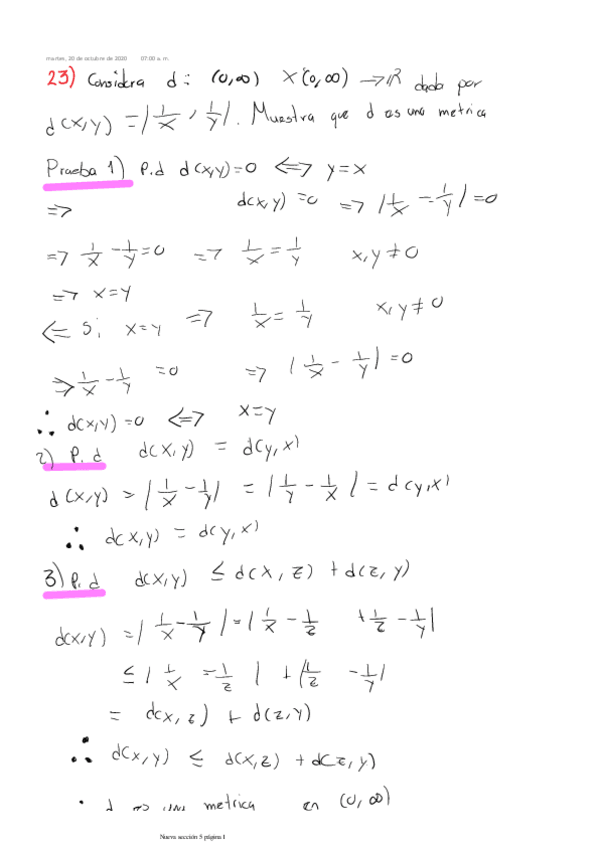 martes, 20 de octubre de 2020 07:00 a. m.
23) Considera d: (0,∞) X (0,∞) → ℝ dada por
d(x,y) = |1/x , 1/y|. Muestra que d es una metrica
Prueba 1) P.d d(x,y)=0 ⟺ y=x
⇒ d(x,y)=0 ⇒ |1/x - 1/y|=0
⇒ 1/x - 1/y=0 ⇒ 1/x = 1/y x,y≠0
⇒ x=y
⇐ Si x=y ⇒ 1/x = 1/y x,y≠0
⇒ 1/x - 1/y =0 ⇒ |1/x - 1/y|=0
∴ d(x,y)=0 ⟺ x=y
2) P.d d(x,y) = d(y,x)
d(x,y) = |1/x - 1/y| = |1/y - 1/x| = d(y,x)
∴ d(x,y) = d(y,x)
3) P.d d(x,y) ≤ d(x,z) + d(z,y)
d(x,y) = |1/x - 1/y| = |1/x - 1/z + 1/z - 1/y|
≤ |1/x - 1/z| + |1/z - 1/y|
= d(x,z) + d(z,y)
∴ d(x,y) ≤ d(x,z) + d(z,y)
∴ d es una metrica en (0,∞)
Nueva sección 5 página 1